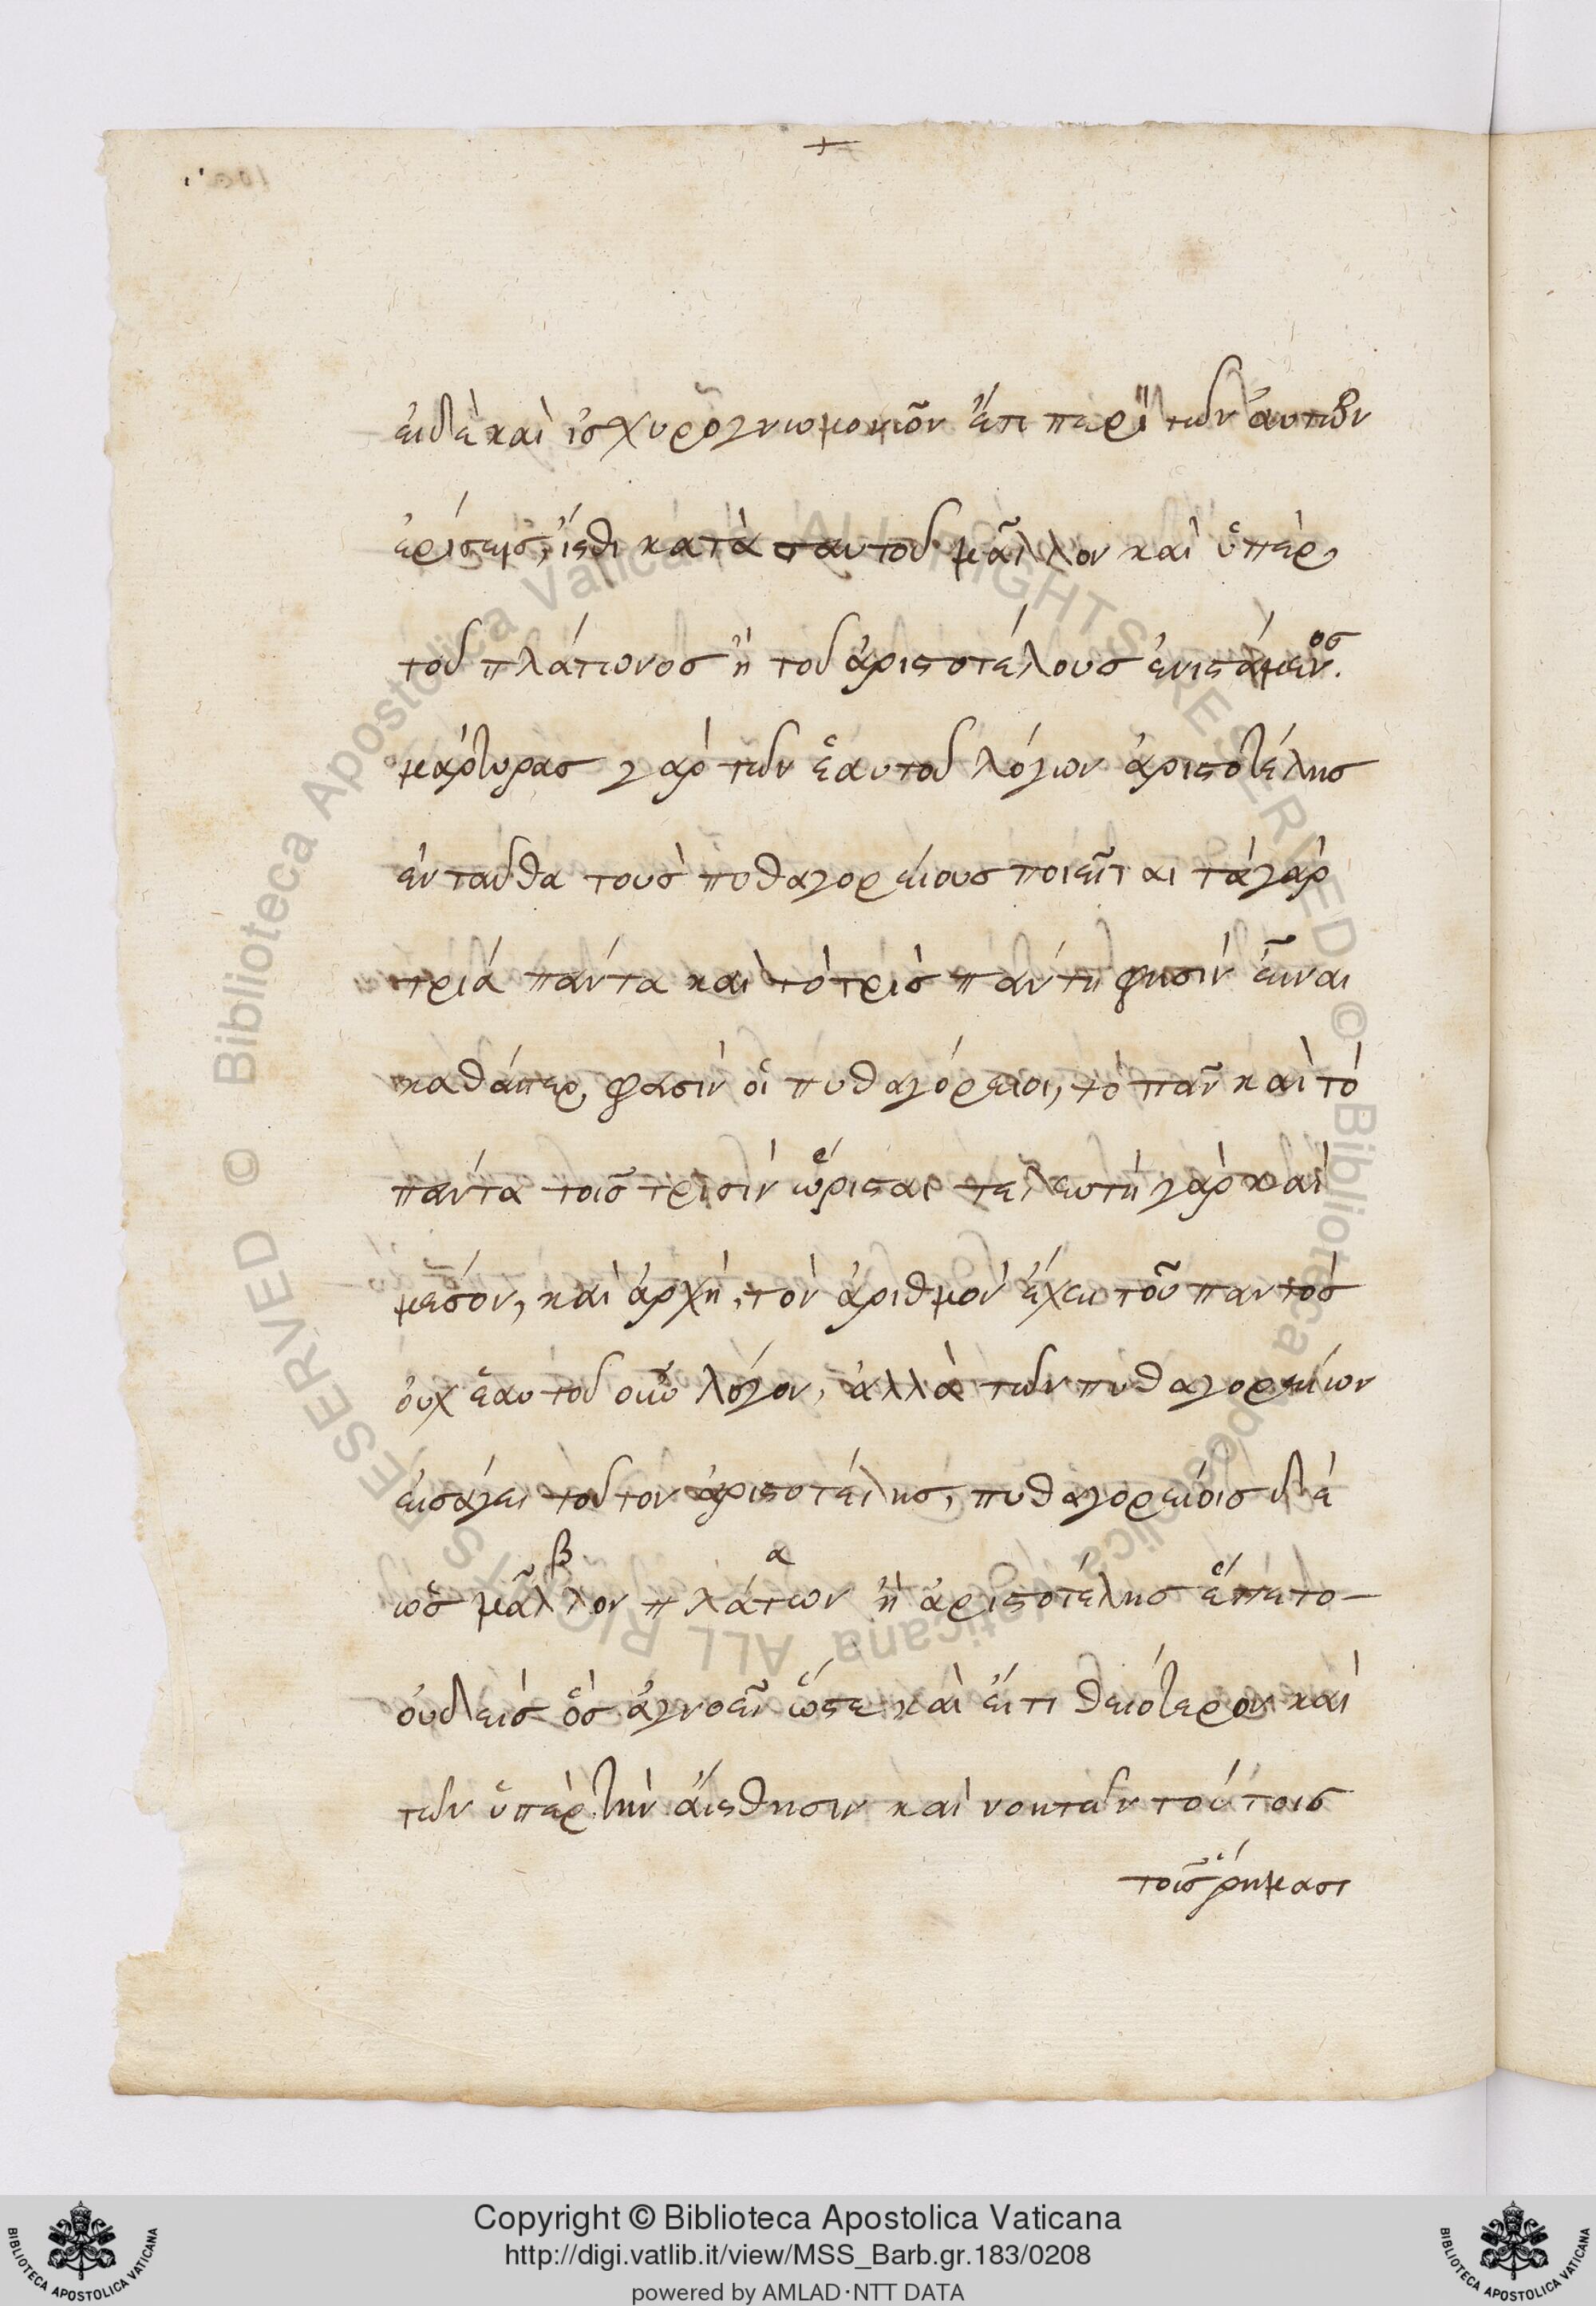 +
εἰ δὲ καὶ ἰσχυρογνωμονῶν ἔτι περὶ τῶν ἀυτῶν
ἐρίσεις, ἴσθι κατὰ σαυτοῦ μᾶλλον καὶ ὑπὲρ
τοῦ πλάτωνος ἢ τοῦ ἀριστοτέλους ἐνιστάμενος.
μάρτυρας γὰρ τῶν ἑαυτοῦ λόγων ἀριστοτέλης
ἐνταῦθα τοὺς πυθαγορείους ποιεῖται τὰ γὰρ
τρία πάντα καὶ τὸ τρὶς πάντη φησὶν εἶναι
καθάπερ φασὶν οἱ πυθαγόρειοι, τὸ πᾶν καὶ τὸ
πάντα τοῖς τρισὶν ὥρισται τελευτὴ γὰρ καὶ
μέσον, καὶ ἀρχὴ, τὸν ἀριθμὸν ἔχει τοῦ παντός
ὀυχ ἑαυτοῦ οὖν λόγον, ἀλλὰ τῶν πυθαγορείων
εἰσάγει τοῦτον ἀριστοτέλης, πυθαγορείοις δὲ
β α
ὡς μᾶλλον πλάτων ἢ ἀριστοτέλης ἕπετο
ὀυδεὶς ὃς ἀγνοεῖ ὥστε καὶ ἔι τι θειότερον καὶ
τῶν ὑπὲρ τὴν ἄισθησιν καὶ νοητῶν τούτοις
τοῖς ῥήμασι
Copyright © Biblioteca Apostolica Vaticana
http://digi.vatlib.it/view/MSS_Barb.gr.183/0208
powered by AMLAD·NTT DATA
BIBLIOTECA APOSTOLICA VATICANA
BIBLIOTECA APOSTOLICA VATICANA